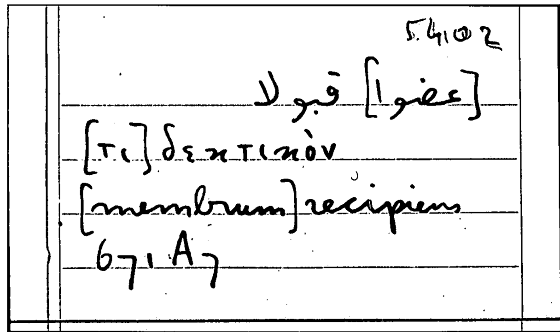 [عضوا] قبولا
[τι] δεκτικὸν
[membrum] recipiens
671 A 7